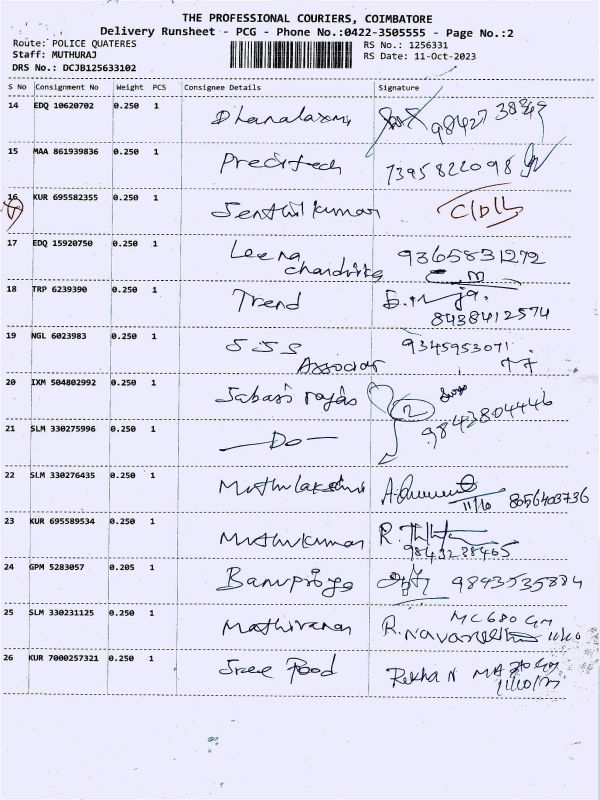 THE PROFESSIONAL COURIERS, COIMBATORE
Delivery Runsheet - PCG - Phone No.:0422-3505555 - Page No.:2
Route: POLICE QUATERES RS No.: 1256331
Staff: MUTHURAJ RS Date: 11-Oct-2023
DRS No.: DCJB125633102
S No Consignment No Weight PCS Consignee Details Signature
14 EDQ 10620702 0.250 1 Dhanalaxmi 98427 38249
15 MAA 861939836 0.250 1 Precitech 7395822098
16 KUR 695582355 0.250 1 Senthil kumar
17 EDQ 15920750 0.250 1 Leena 9365831272
chandrika
18 TRP 6239390 0.250 1 Trend
8438412574
19 NGL 6023983 0.250 1 S S S 9345953071
Associat
20 IXM 504802992 0.250 1 2
9843804446
21 SLM 330275996 0.250 1 — Do —
22 SLM 330276435 0.250 1 Muthulakshmi 11/10 8056403736
23 KUR 695589534 0.250 1 Muthukumar
9843238465
24 GPM 5283057 0.205 1 Banupriya 9843535884
25 SLM 330231125 0.250 1 Mathivanan MC680 Gm
R. 11/10
26 KUR 7000257321 0.250 1 Sree Food Rekha N
11/10/23